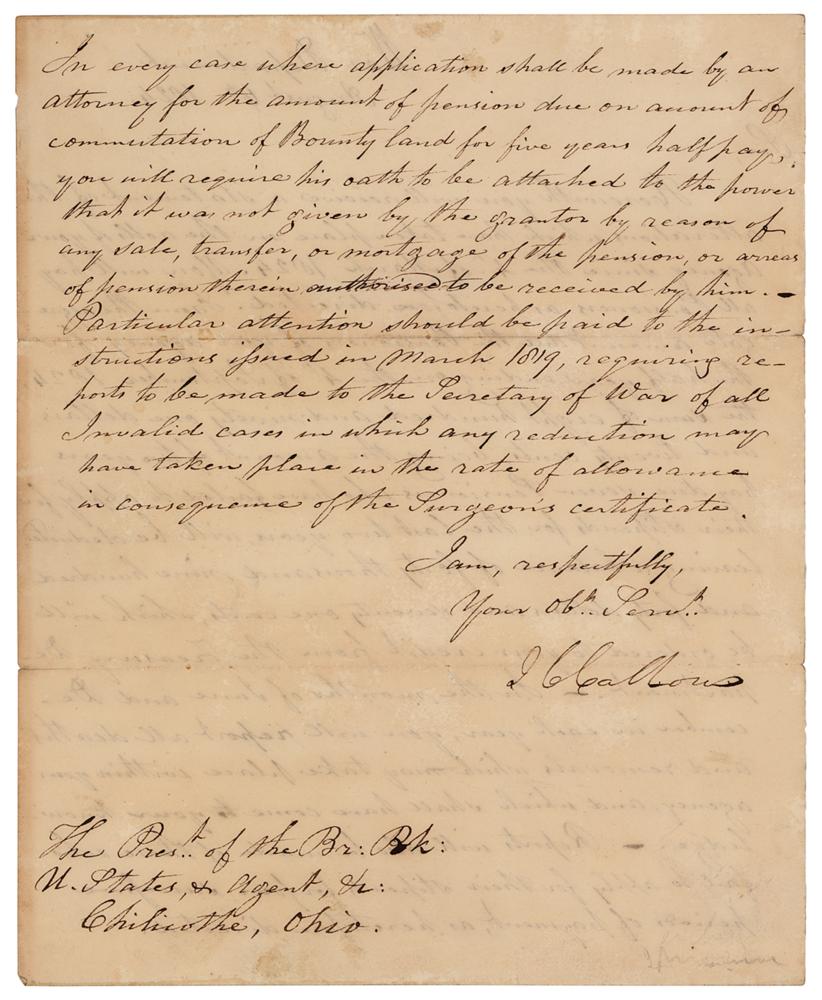 In every case where application shall be made by an
attorney for the amount of pension due on account of
commutation of Bounty land for five years half pay,
you will require his oath to be attached to the power
that it was not given by the grantor by reason of
any sale, transfer, or mortgage of the pension, or arrears
of pension therein authorised to be received by him. —
Particular attention should be paid to the in-
structions issued in March 1819, requiring re-
ports to be made to the Secretary of War of all
Invalid cases in which any reduction may
have taken place in the rate of allowance
in consequence of the Surgeon's certificate.
I am, respectfully,
Your Obt. Servt.
J C Calhoun
The Prest. of the Br: Bk:
U. States, & Agent, &c:
Chilicothe, Ohio.